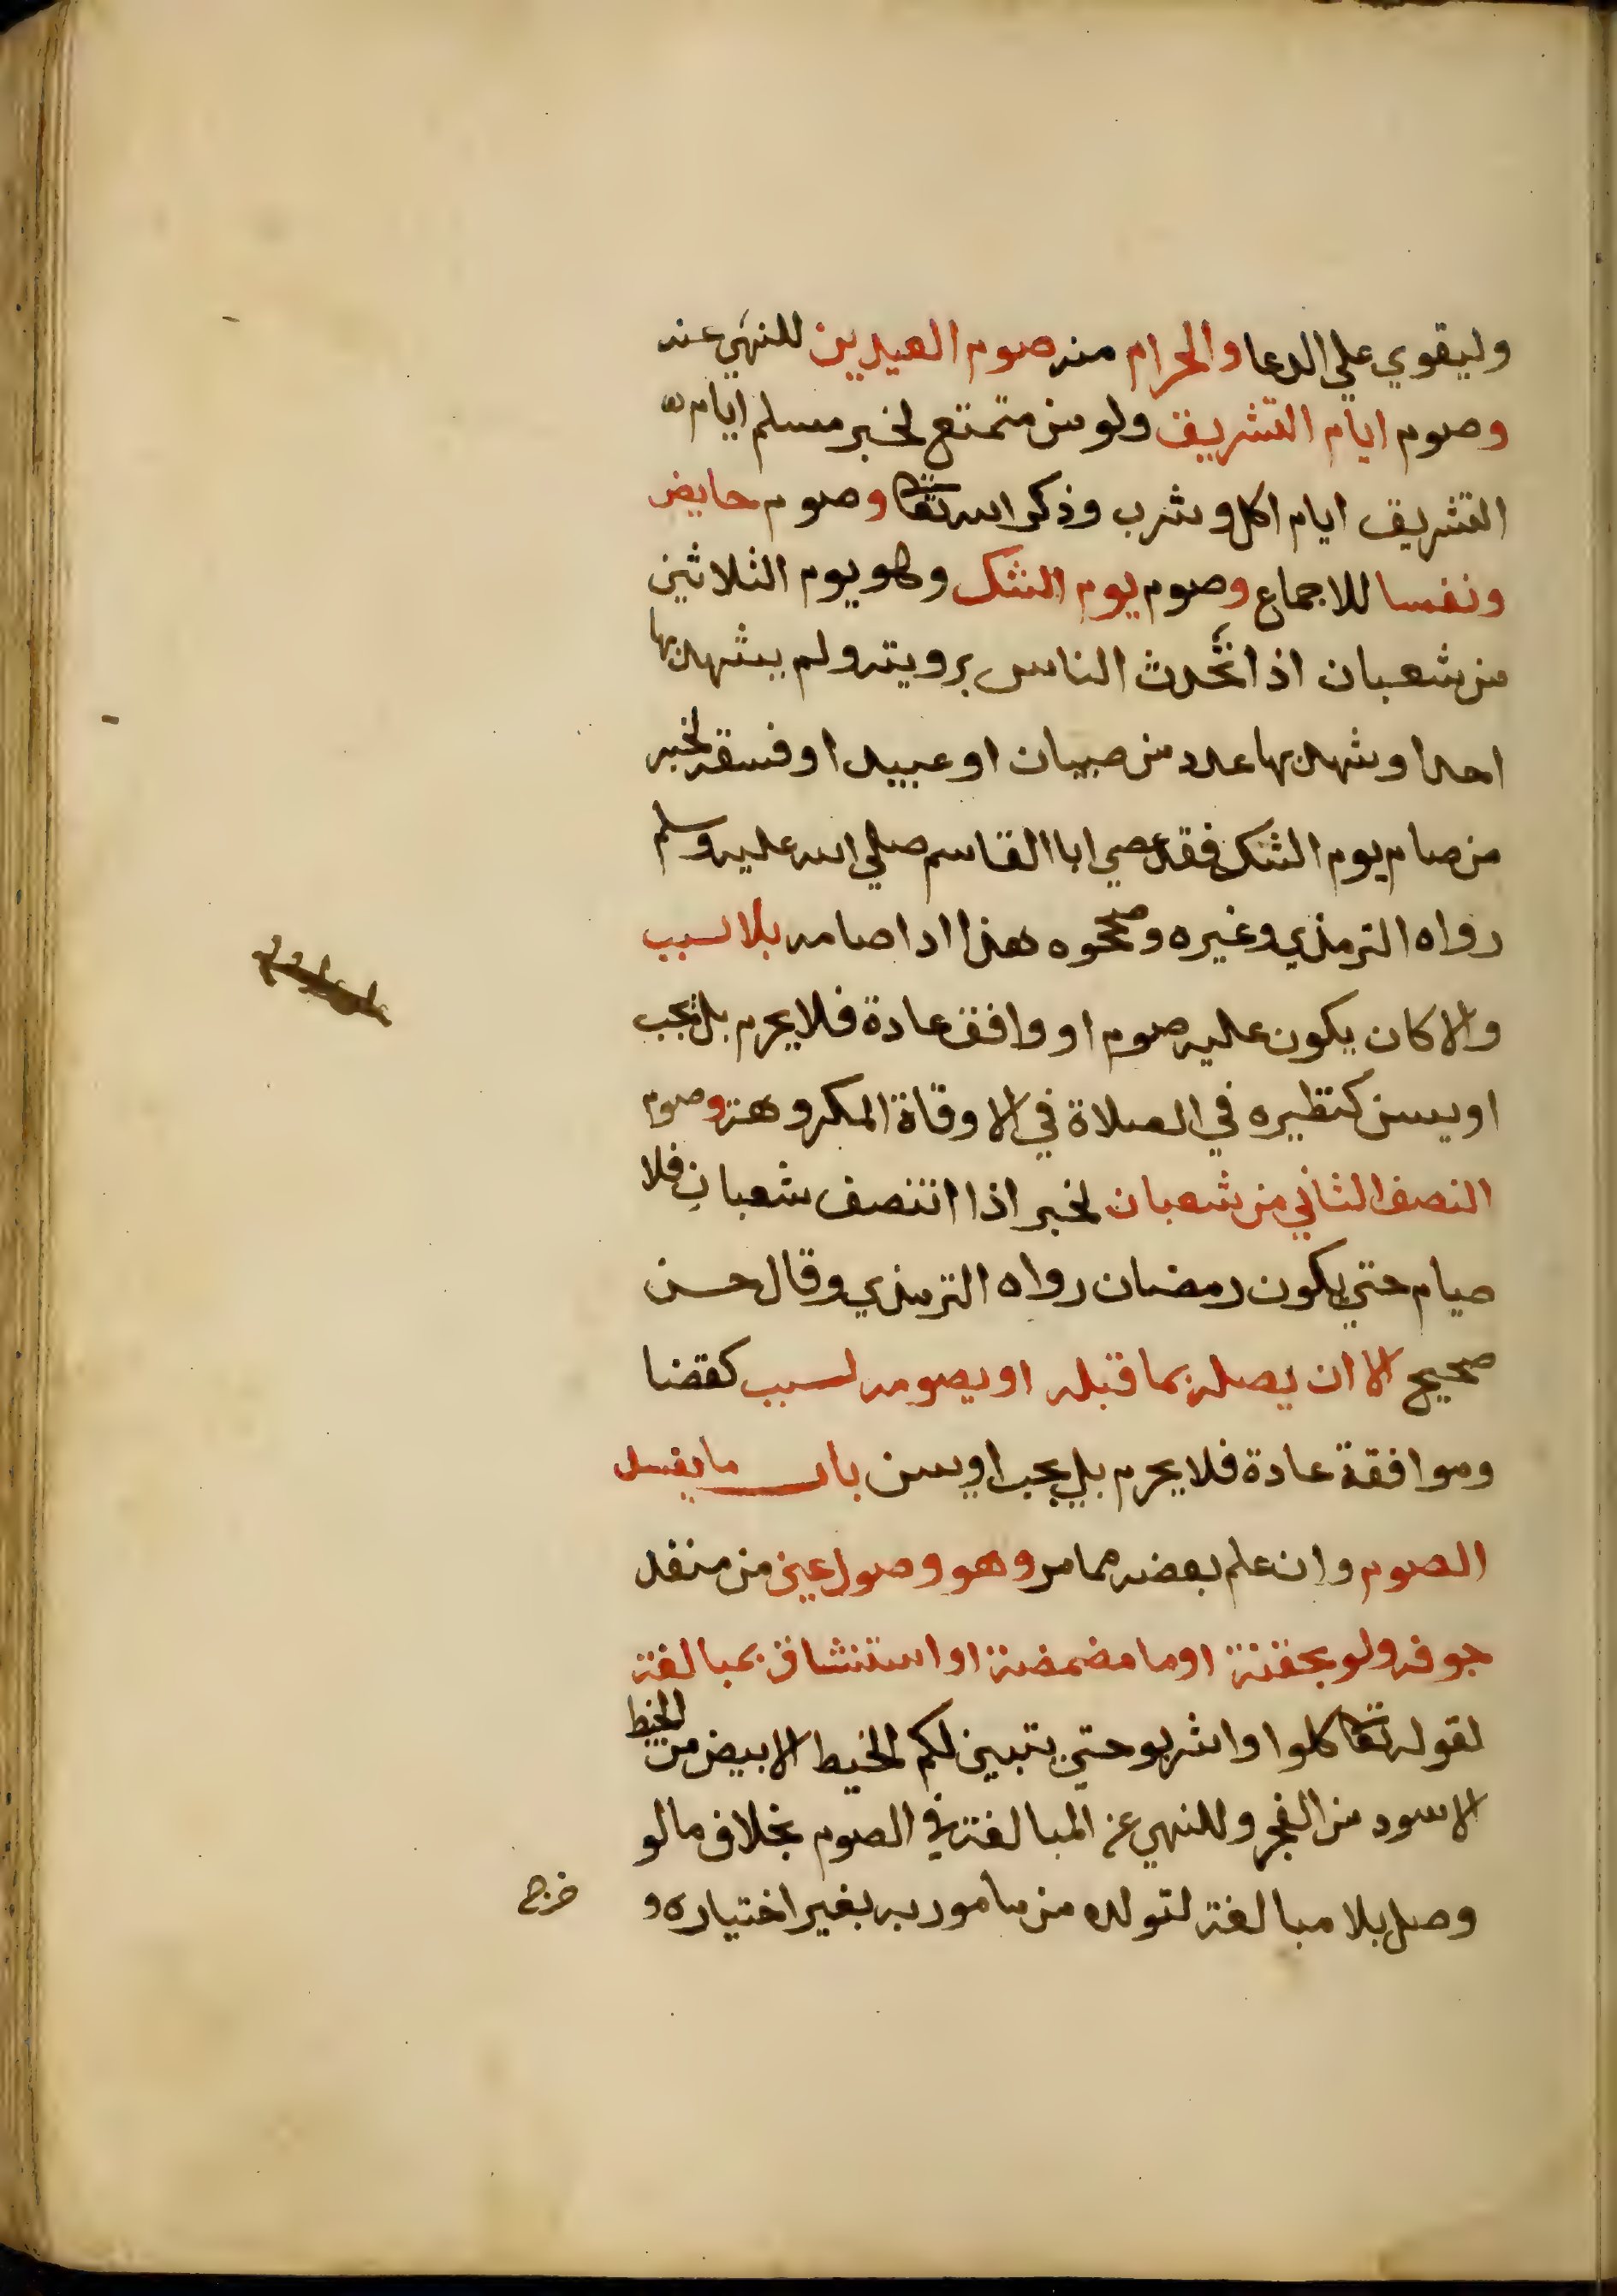 وليقوي علي الدعا والحرام منه صوم العيدين للنهي عنه
وصوم ايام التشريق ولو من متمتع لخبر مسلم ايام
التشريق ايام اكل وشرب وذكر الله تعا وصوم حايض
ونفسا للاجماع وصوم يوم الشك وهو يوم الثلاثين
من شعبان اذا تحدث الناس برويته ولم يشهد بها
احد او شهد بها عدد من صبيان او عبيد او فسقة لخبر
من صام يوم الشك فقد عصي ابا القاسم صلي الله عليه وسلم
رواه الترمذي وغيره وصححوه هذا اذا صامه بلا سبب
والا كان يكون عليه صوم او وافق عادة فلا يحرم بل يجب
او يسن كنظيره في الصلاة في الاوقاة المكروهة وصوم
النصف الثاني من شعبان لخبر اذا انتصف شعبان فلا
صيام حتي يكون رمضان رواه الترمذي وقال حسن
صحيح الا ان يصله بما قبله او يصومه لسبب كقضا
وموافقة عادة فلا يحرم بل يجب او يسن باب ما يفسد
الصوم وان علم بعضه مما مر وهو وصول عين من منفد
جوفه ولو بحقنة او ما مضمضة او استنشاق بمبالغة
لقوله تعا كلوا واشربو حتي يتبين لكم الخيط الابيض من الخيط
الاسود من الفجر وللنهي عن المبالغة في الصوم بخلاف ما لو
وصل بلا مبالغة لتولده من مامور به بغير اختياره و
خرج